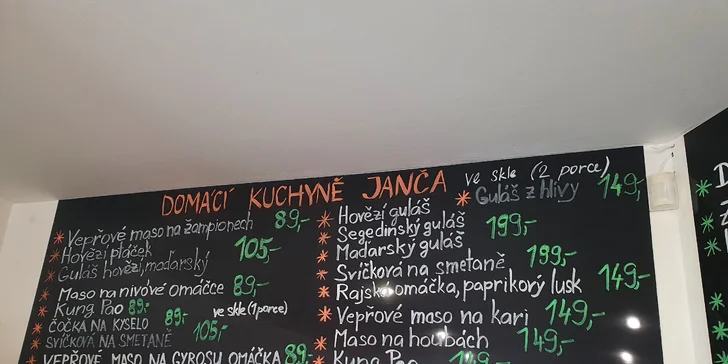 DOMÁCÍ KUCHYNĚ JANČA
ve skle (2 porce)
* Guláš z hlívy 149,-
* Vepřové maso na žampionech 89,-
* Hovězí plácek
* Guláš hovězí, maďarský 105,-
* Maso na nivové omáčce 89,-
* Kung Pao 89,-
ve skle (1 porce)
* ČOČKA NA KYSELO 89,-
* SVÍČKOVÁ NA SMETANĚ 105,-
VEPŘOVÉ MASO NA GYROSU OMÁČKA 89,-
* Hovězí guláš
* Segedínský guláš 199,-
* Maďarský guláš
* Svíčková na smetaně 199,-
* Rajská omáčka, paprikový lusk 149,-
* Vepřové maso na kari 149,-
* Maso na houbách
Kung Pao 149,-